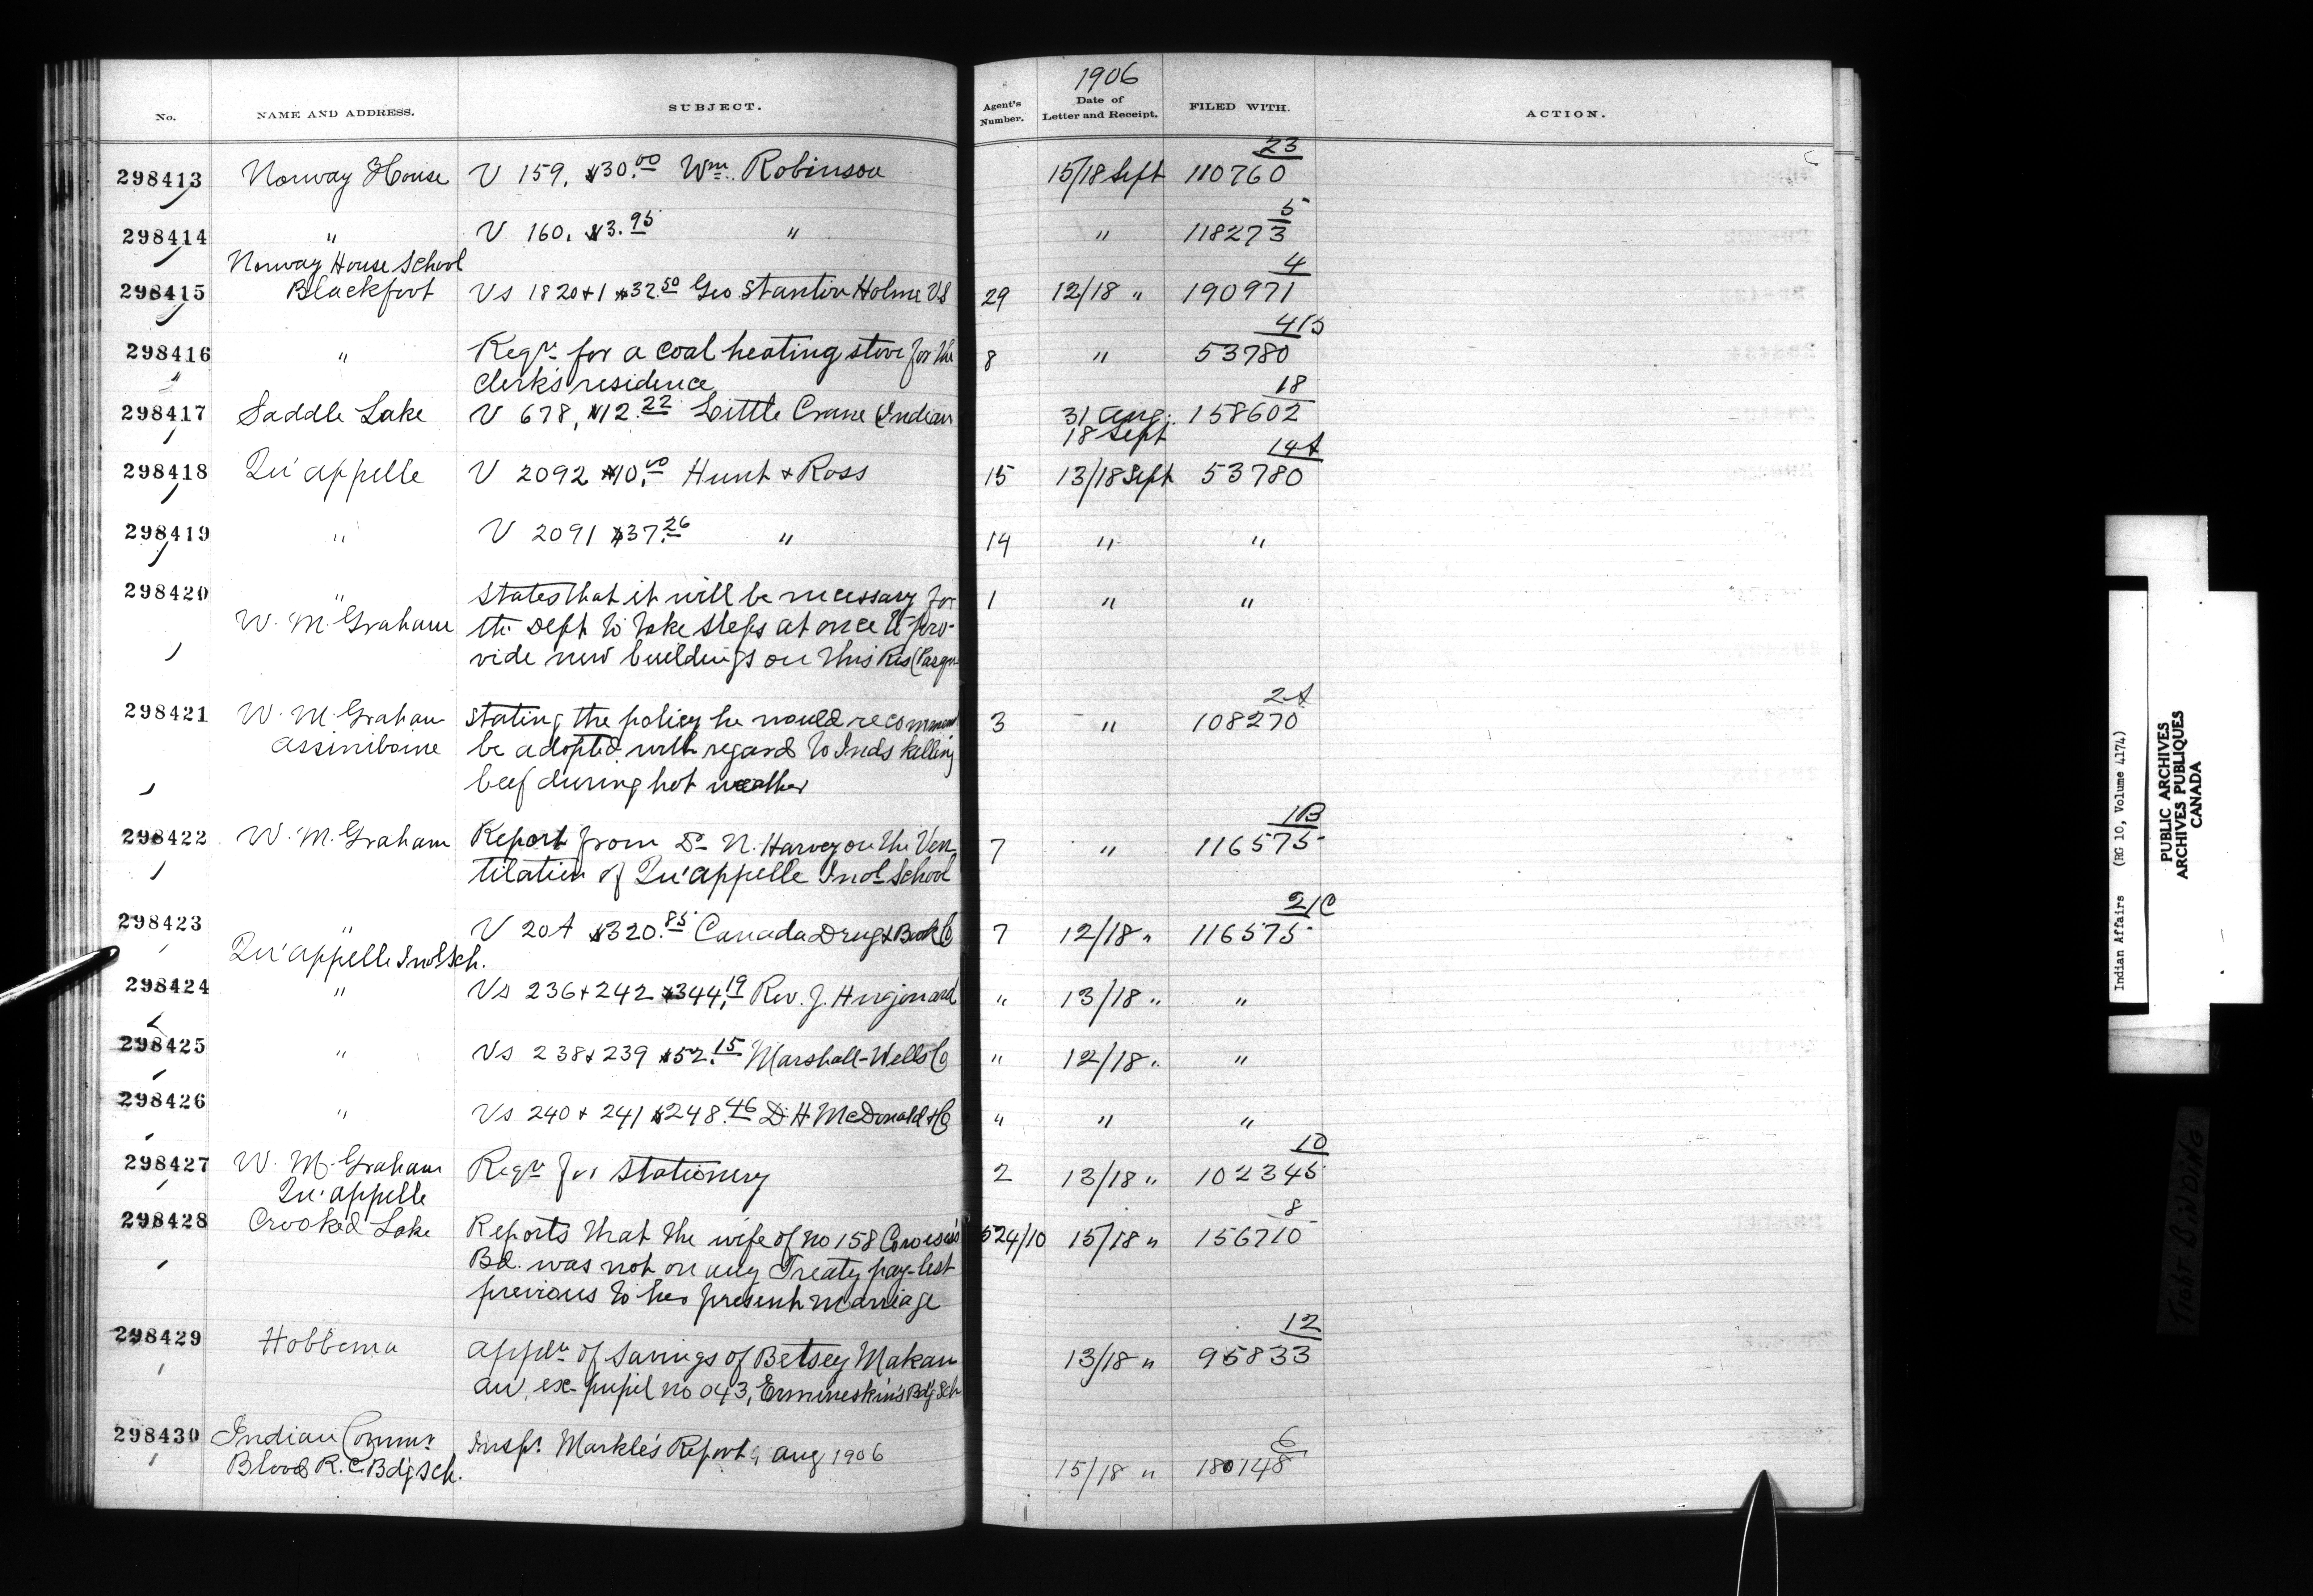 1906
No. NAME AND ADDRESS. SUBJECT. Agent's Number. Date of Letter and Receipt. FILED WITH. ACTION.
23
298413 Norway House V 159, $30.00 Wm Robinson 15/18 Sept 110760
5
298414 " V 160, $3.95 " " 118273
Norway House School
4
298415 Blackfoot Vs 1820+1 $37.50 Geo Stanton Holme VS 29 12/18 " 190971
41B
298416 " Reqn for a coal heating stove for the 8 " 53780
clerk's residence
18
298417 Saddle Lake V 678, $12.22 Little Crane (Indian 31 Aug. 158602
18 Sept
14A
298418 Qu'appelle V 2092 $10.00 Hunt & Ross 15 13/18 Sept 53780
298419 " V 2091 $37.26 " 14 " "
298420 " States that it will be necessary for 1 " "
W. M. Graham the Dept to take steps at once to pro-
vide new buildings on this Res (Pasqu
2A
298421 W. M. Graham Stating the policy he would recommend 3 " 108270
Assiniboine be adopted with regard to Inds killing
beef during hot weather
1B
298422 W. M. Graham Report from Dr N. Harvey on the Ven 7 " 116575
tilation of Qu'appelle Indl School
21C
298423 " V 20A $320.85 Canada Drug & Book Co 7 12/18 " 116575
Qu'appelle Indl Sch.
298424 " Vs 236+242 $344.19 Rev. J. Hugonard " 13/18 " "
298425 " Vs 238+239 $52.15 Marshall-Wells Co " 12/18 " "
298426 " Vs 240+241 $248.46 D. H. McDonald & Co " " "
10
298427 W. M. Graham Reqn for Stationery 2 13/18 " 102345
Qu'appelle
8
298428 Crooked Lake Reports that the wife of no 158 Cowesess's 524/10 15/18 " 156710
Bd. was not on any Treaty pay-list
previous to her present marriage
12
298429 Hobbema Appln of Savings of Betsey Makan 13/18 " 95833
aw, ex-pupil no 043, Ermineskin's Bd'g Sch
6
298430 Indian Commr Inspr. Markle's Report, Aug 1906 15/18 " 180148
Blood R.C. Bd'g Sch.
Indian Affairs (RG 10, Volume 4174)
PUBLIC ARCHIVES
ARCHIVES PUBLIQUES
CANADA
TIGHT BINDING